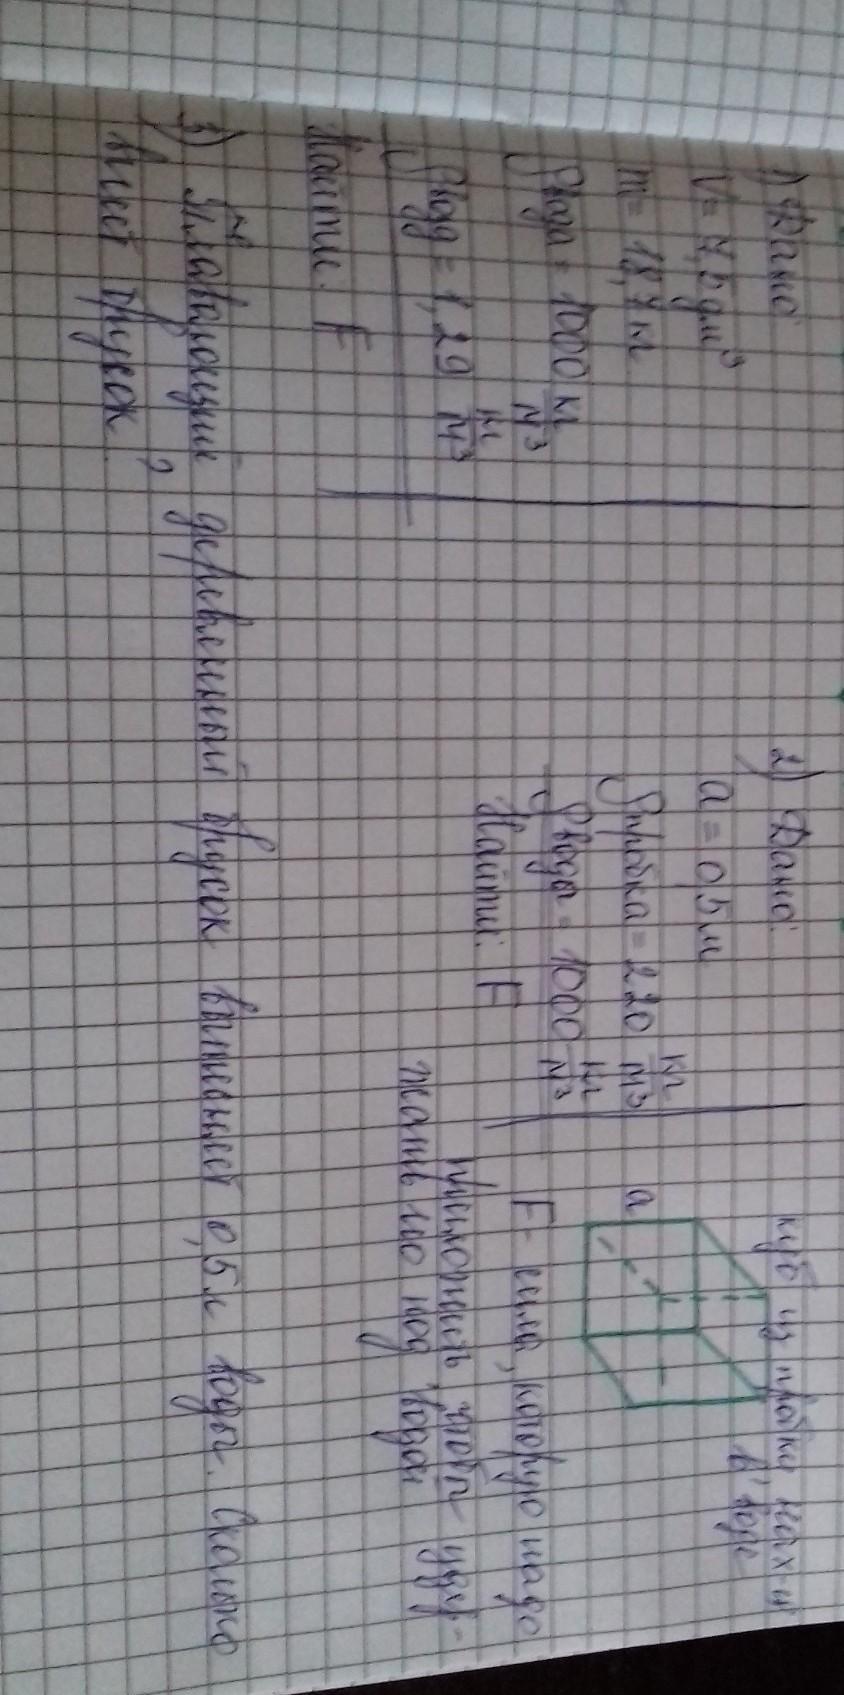 1) Дано:
V = 7,5 дм³
m = 18,7 кг
ρвода = 1000 кг/м³
ρвозд = 1,29 кг/м³
Найти: F
2) Дано:
a = 0,5 м
ρпробка = 220 кг/м³
ρводы = 1000 кг/м³
Найти: F
куб из пробки нах-ся
в воде
a
F - сила, которую надо
приложить, чтобы удер-
жать его под водой
3) Плавающий деревянный брусок вытесняет 0,5 л воды. Сколько
весит брусок?